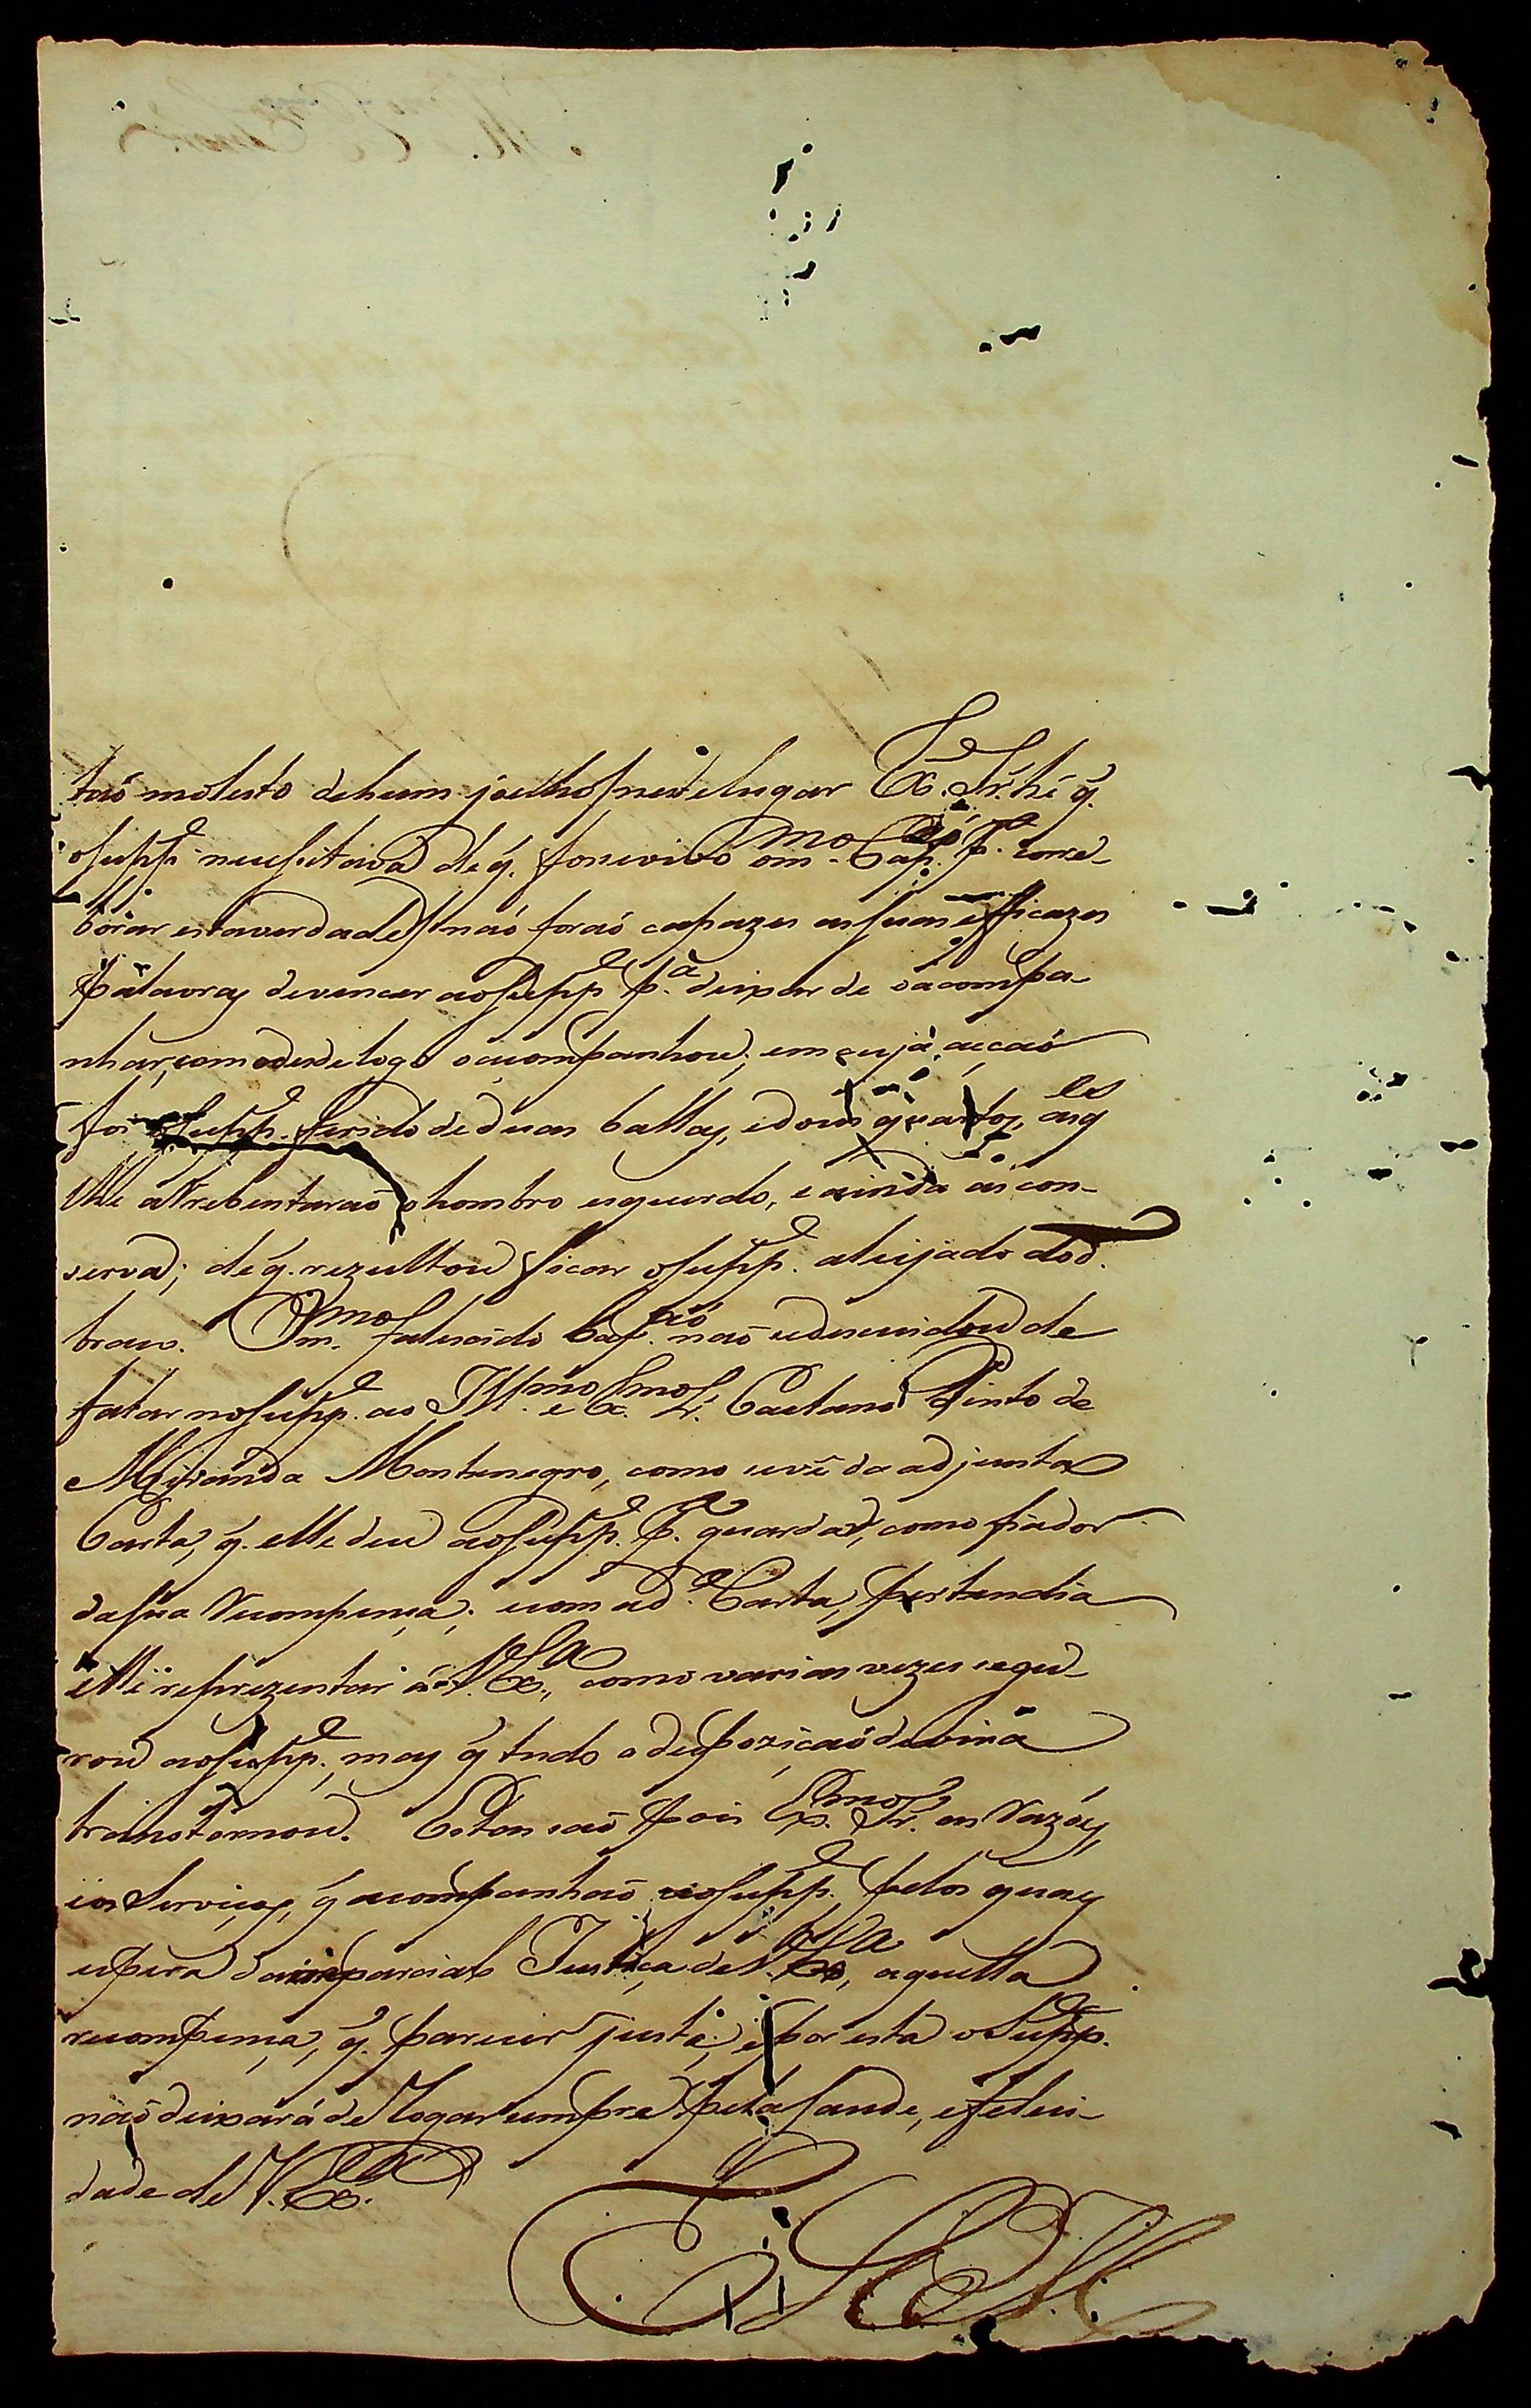 taõ molesto de hum joelho, neste lugar Ex. Sr. hé q.
o Supp.e necessitava de q. fosse vivo o m.mo Cap.ão p.a corro-
borar esta verdade, naõ foraõ capazes as suas efficazes
Palavras de vencer ao Supp.e p.a deixar de o acompa-
nhar, como desde logo o acompanhou; em cuja acçaõ
foi o Supp.e ferido de duas ballas, e dous quartos, as q.les
lhe arrebentaraõ o hombro esquerdo, e ainda as con-
serva; de q. rezultou ficar o Supp.e aleijado do d.o
braço. O m.mo falecido Cap.ão naõ se descuidou de
falar no Supp.e ao Ill.mo e Ex.mo Sr. Caetano Pinto de
Miranda Montenegro, como se vê da adjunta
Carta, q. elle deu ao Supp.e p.a guardar, como fiador
da sua Recompença; e com a d.a Carta, pertendia
elle reprezentar á V. Ex.a, como varias vezes segu-
rou ao Supp.e, mas q tudo a dispoziçaõ divina
transtornou. Estas saõ pois Ex.mo Sr. as Razões,
e os Serviços, q acompanhaõ ao Supp.e pelos quaes
espera da imparcial Justiça de V. Ex.a, aquella
recompença, q. parecer justa; e por esta o Supp.e
naõ deixará de Rogar sempre pela saude, e felici-
dade de V. Ex.a
E. R. M.